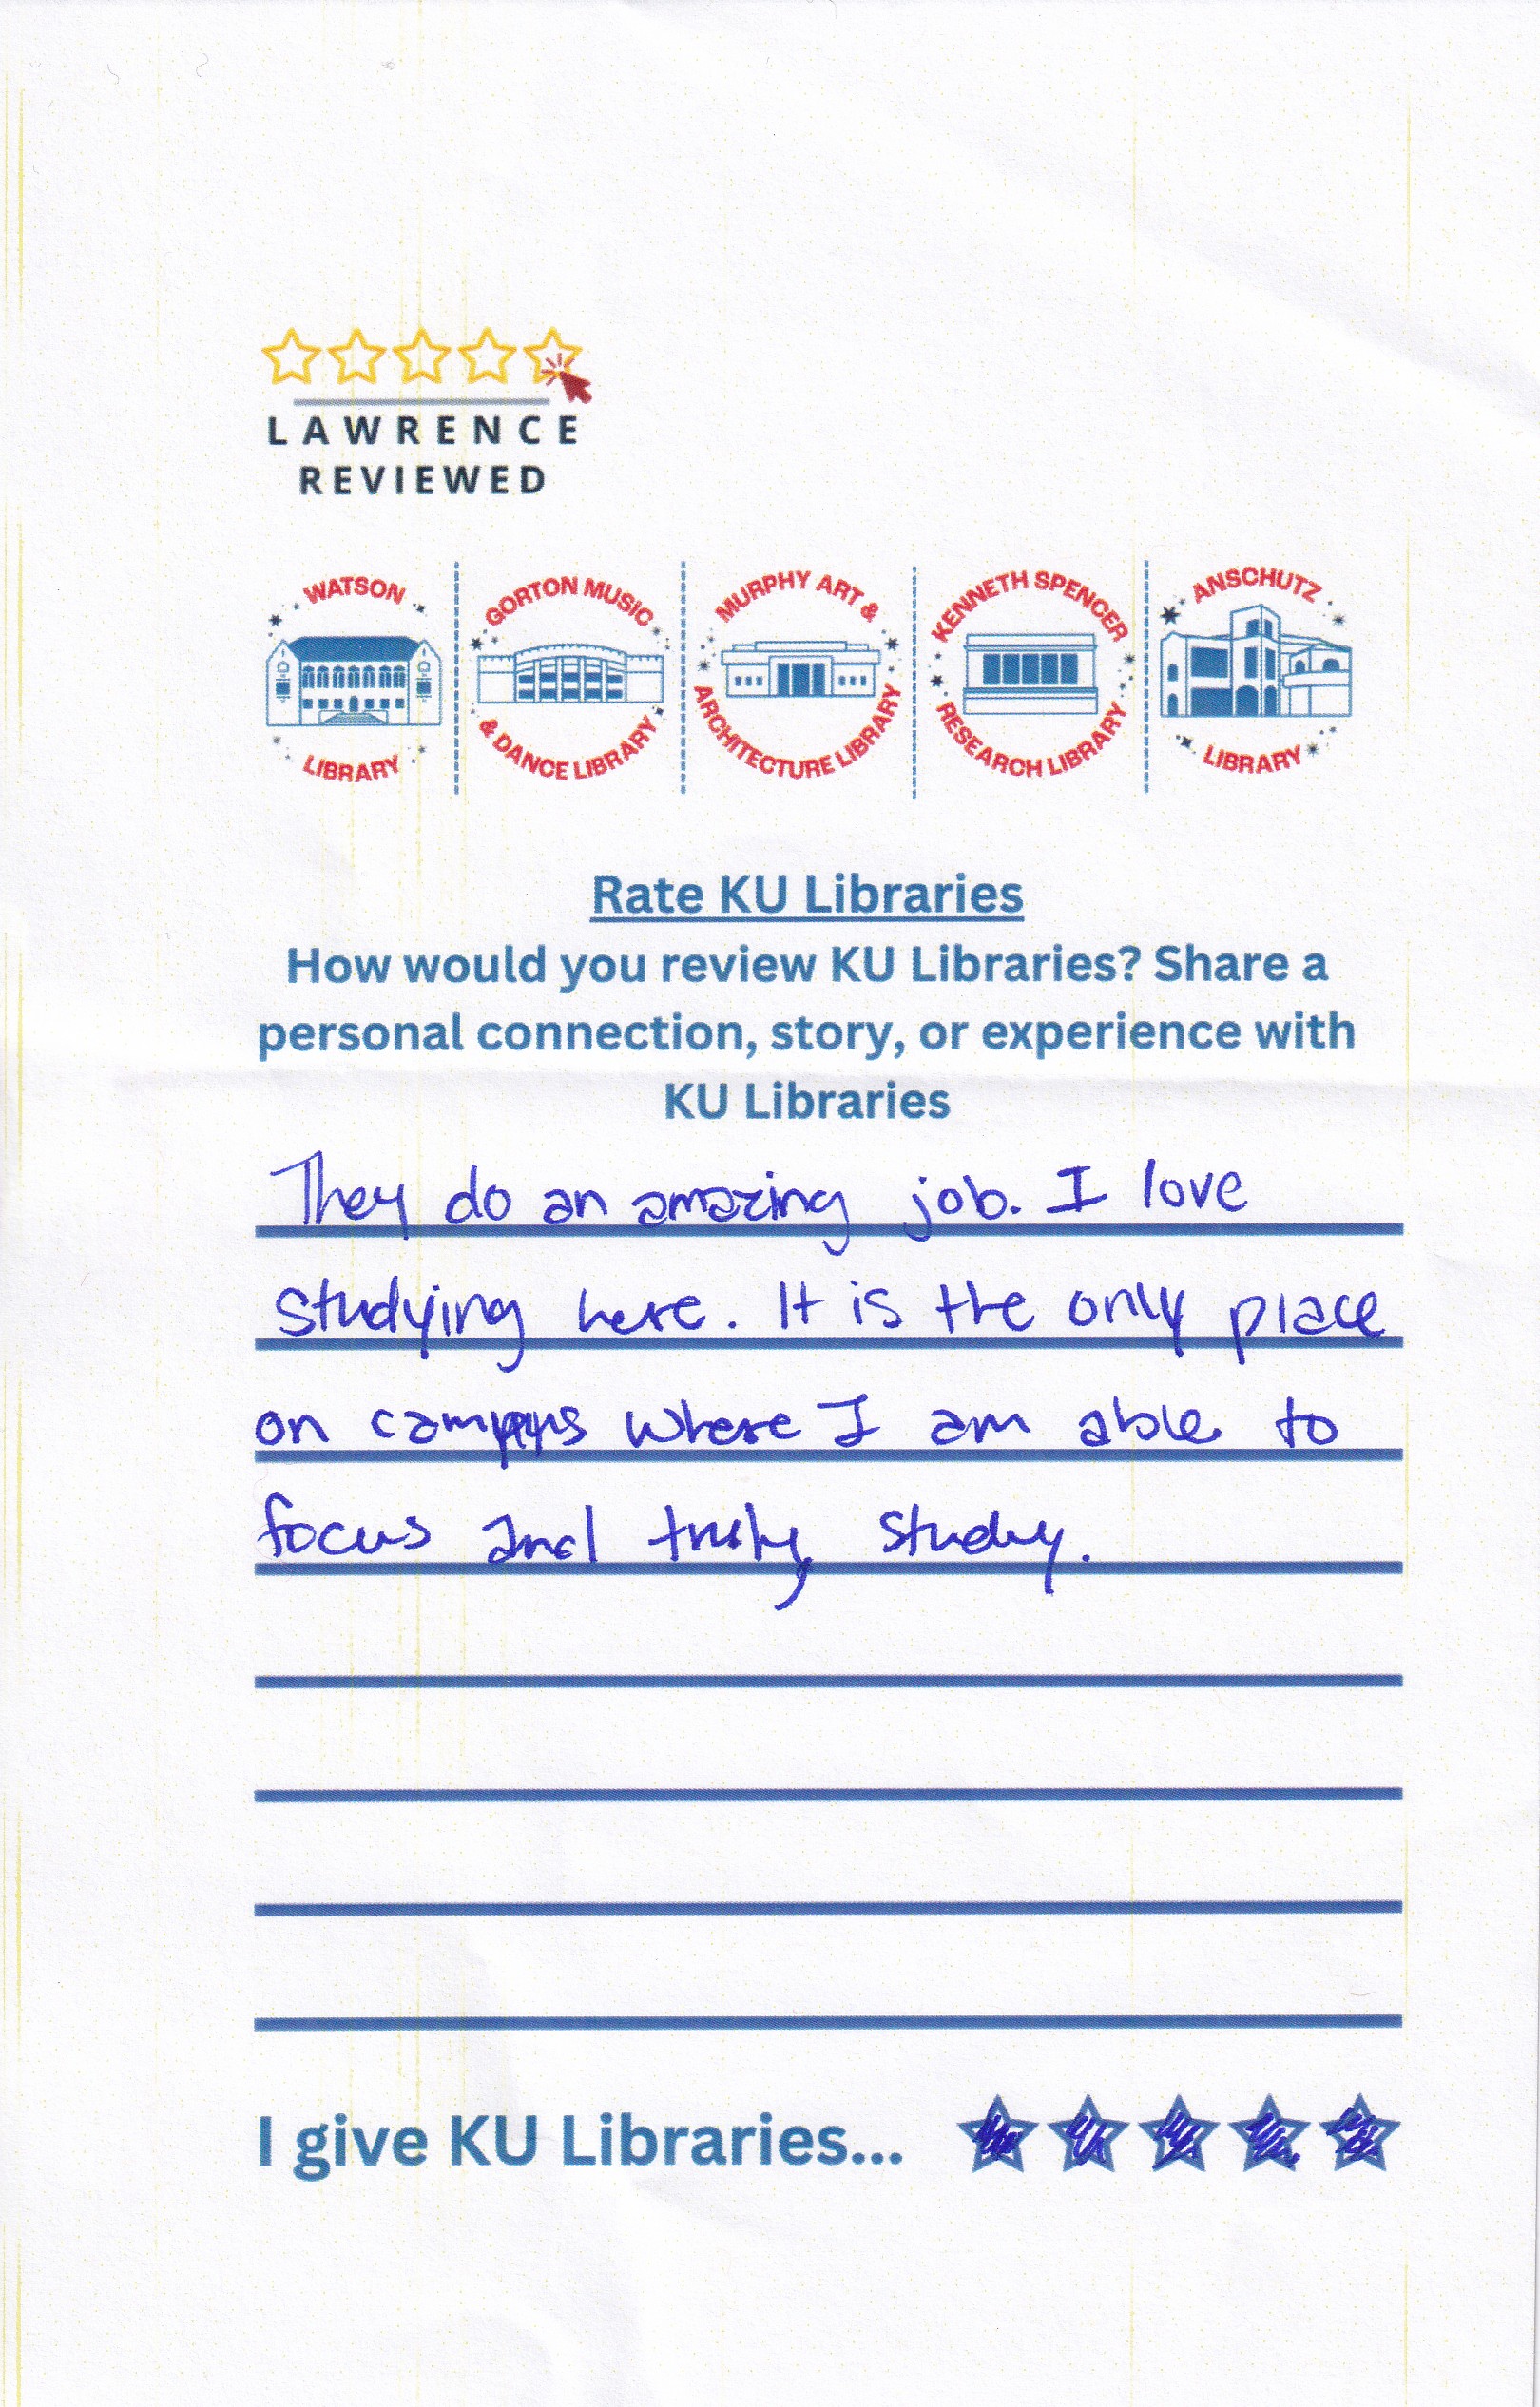 LAWRENCE
REVIEWED
WATSON
LIBRARY
GORTON MUSIC
& DANCE LIBRARY
MURPHY ART &
ARCHITECTURE LIBRARY
KENNETH SPENCER
RESEARCH LIBRARY
ANSCHUTZ
LIBRARY
Rate KU Libraries
How would you review KU Libraries? Share a
personal connection, story, or experience with
KU Libraries
They do an amazing job. I love
studying here. It is the only place
on campus where I am able to
focus and truly study.
I give KU Libraries...